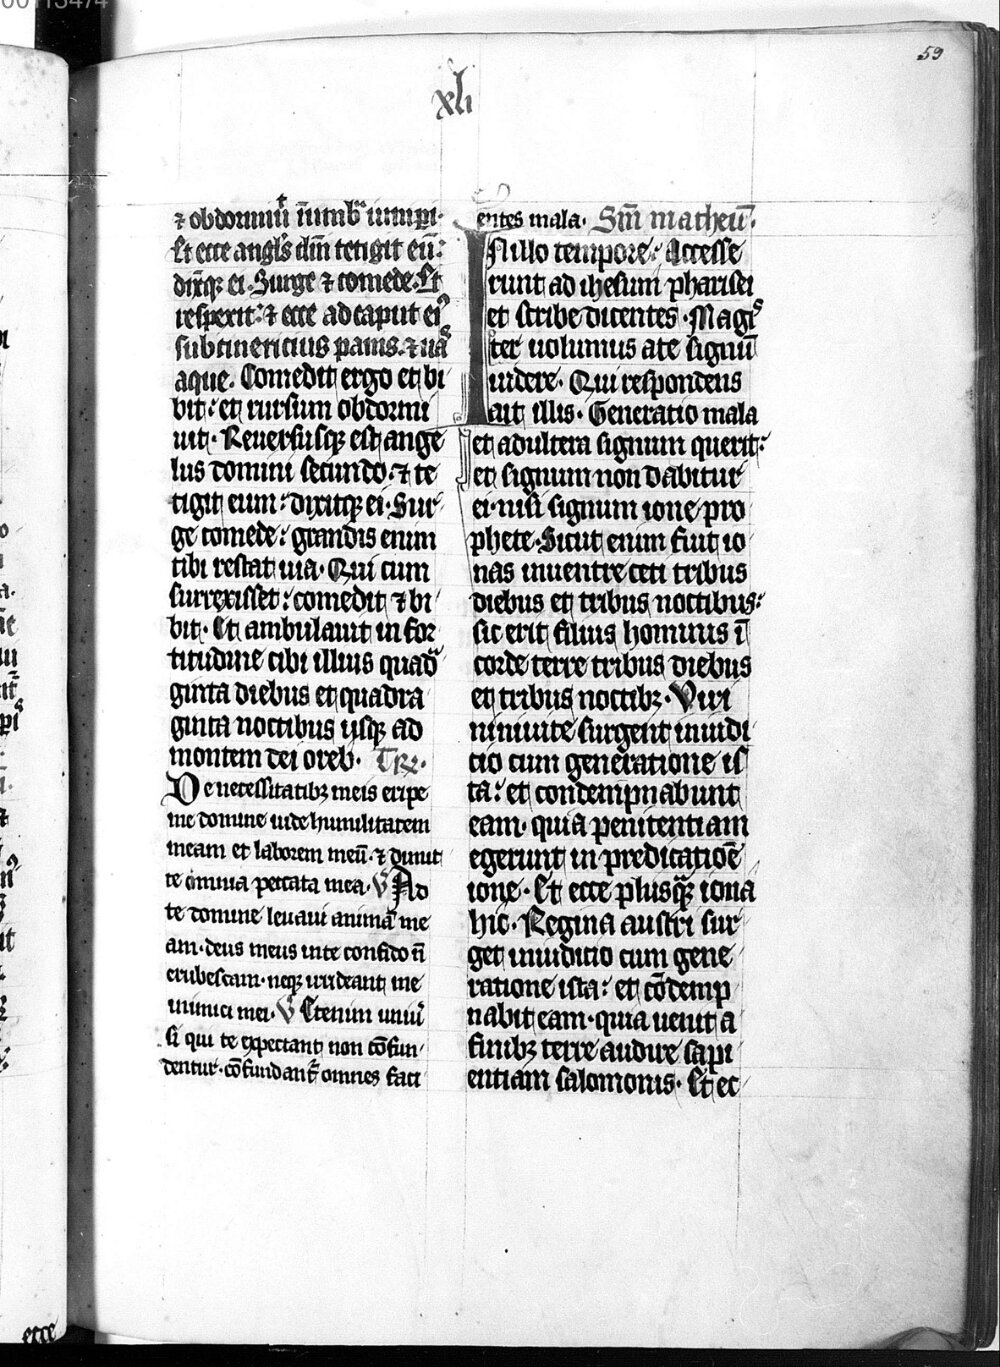 59
xli
⁊ obdormiuit in umbra iuniperi·
Et ecce angl's dn̄i tetigit eū:
dixitq; ei· Surge ⁊ comede· Et
respexit: ⁊ ecce ad caput eiꝰ
subcinericius panis· ⁊ uas
aque. Comedit ergo et bi
bit: et rursum obdormi
uit· Reuersusq; est ange
lus domini secundo: ⁊ te
tigit eum: dixitq; ei· Sur
ge comede: grandis enim
tibi restat uia· Qui cum
surrexisset: comedit ⁊ bi
bit· Et ambulauit in for
titudine cibi illius quad
ginta diebus et quadra
ginta noctibus usq; ad
montem dei oreb· Tr̄c·
De necessitatibꝫ meis eripe
me domine uide humilitatem
meam et laborem meū· ⁊ dimit
te omnia peccata mea· V Ad
te domine leuaui animā me
am· deus meus in te confido nō
erubescam· neq; irrideant me
inimici mei· V Etenim uniū
si qui te expectant non cōfun
dentur· cōfundant̄ omnes faci
entes mala· Sm̄ matheū·
In illo tempore: Accesse
runt ad ihesum pharisei
et scribe dicentes· Magis
ter uolumus a te signū
uidere· Qui respondens
ait illis· Generatio mala
et adultera signum querit:
et signum non dabitur
ei· nisi signum ione pro
phete· Sicut enim fuit io
nas in uentre ceti tribus
diebus et tribus noctibus:
sic erit filius hominis ī
corde terre tribus diebus
et tribus noctibꝫ· Viri
niniuite surgent in iudi
cio cum generatione is
ta: et condempnabunt
eam· quia penitentiam
egerunt in predicatiōe
ione· Et ecce plusq̄ iona
hic· Regina austri sur
get in iudicio cum gene
ratione ista: et cōdemp
nabit eam· quia uenit a
finibꝫ terre audire sapi
entiam salomonis· Et ec
ecce